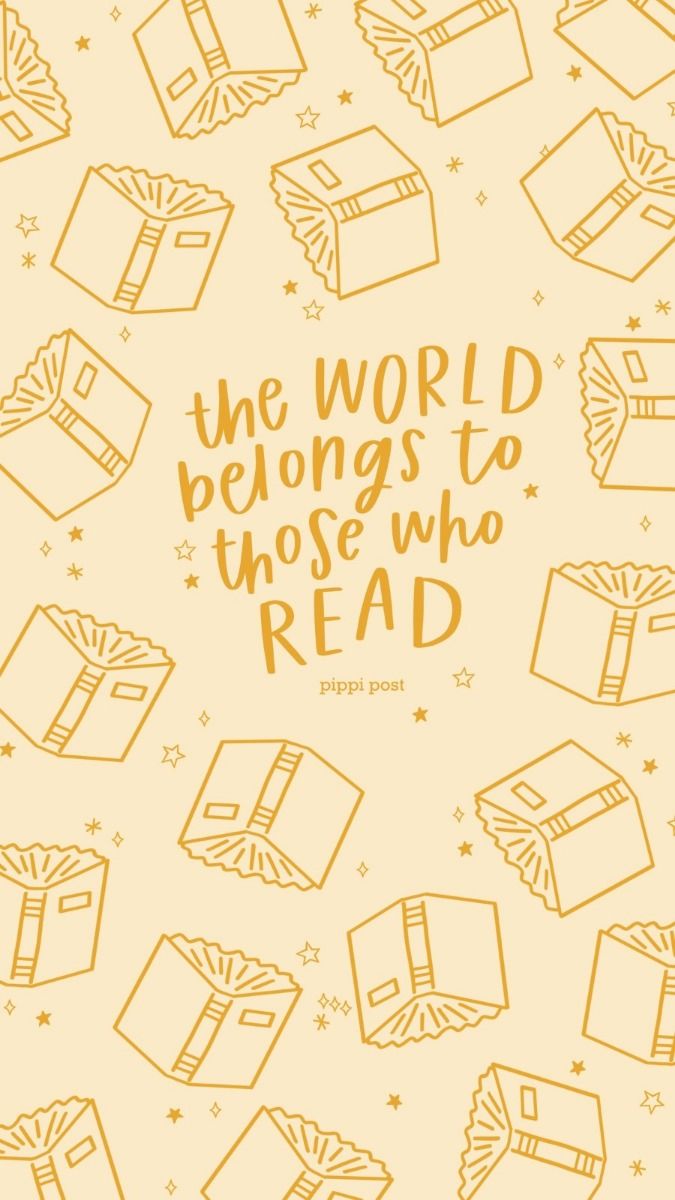 the WORLD
belongs to
those who
READ
pippi post